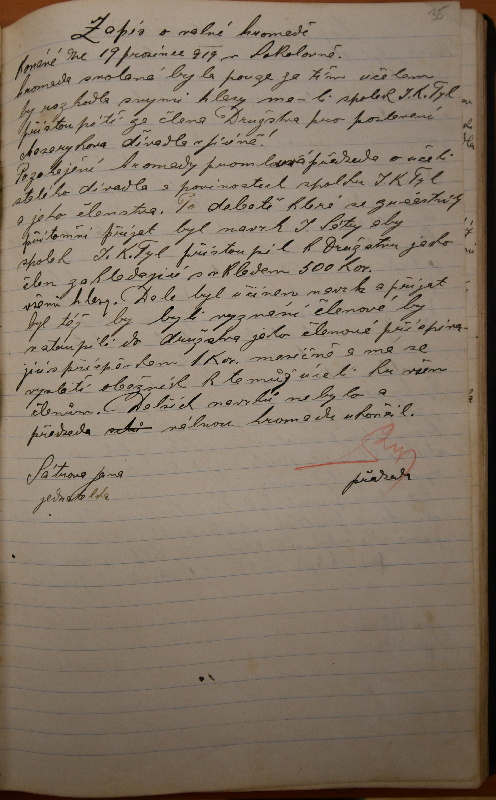 35
Zápis o valné hromadě
Konáné dne 19 prosince 919 v Sokolovně.
hromada svolaná byla pouze za tím účelem
by rozhodla svými hlasy má-li spolek J.K.Tyl
přistoupiti za člena Družstva pro postavení
Masarykova divadla v
Po zahájení hromady promlouvá předseda o účeli
stálého divadla a povinostech spolku J K Tyl
a jeho členstva. Po debatě které se zúčastnily
přítomní přijat byl navrh J. Šáty aby
spolek J. K. Tyl přistoupil k Družstvu jako
člen zakládající s vkladem 500 Kor.
všemi hlasy. Dale byl učiněn navrh a přijat
byl též by byli vyzváni členové by
vstoupili do družstva jako členové přispíva-
jící s příspěvkem 1 Kor. měsíčně a má se
vyslati oběžník k temuž účeli ku všem
členům. Dalších navrhů nebylo a
předseda valnou hromadu ukončil.
Šátrova Jana
jednatelka
předseda